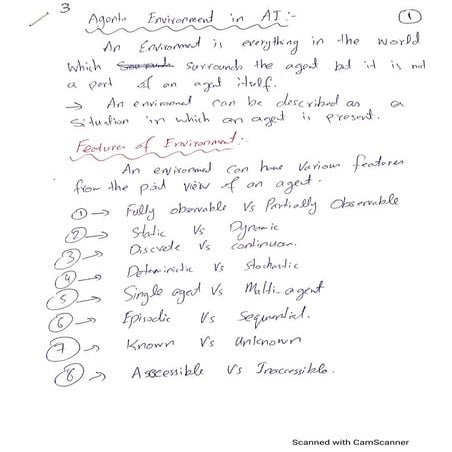 3
Agents Environment in AI :-
1
An Environment is everything in the world
which surrounds the agent but it is not
a part of an agent itself.
→ An enviroment can be described as a
Situation in which an agent is present.
Features of Environment :-
An environment can have various features
from the point view of an agent.
① → Fully observable Vs Partially Observable
② → Static Vs Dynamic
③ → Discrete Vs continuous.
④ → Deterministic Vs Stochastic
⑤ → Single agent Vs Multi-agent
⑥ → Episodic Vs Sequential.
⑦ → Known Vs Unknown
⑧ → Asccessible Vs Inaccessible.
Scanned with CamScanner